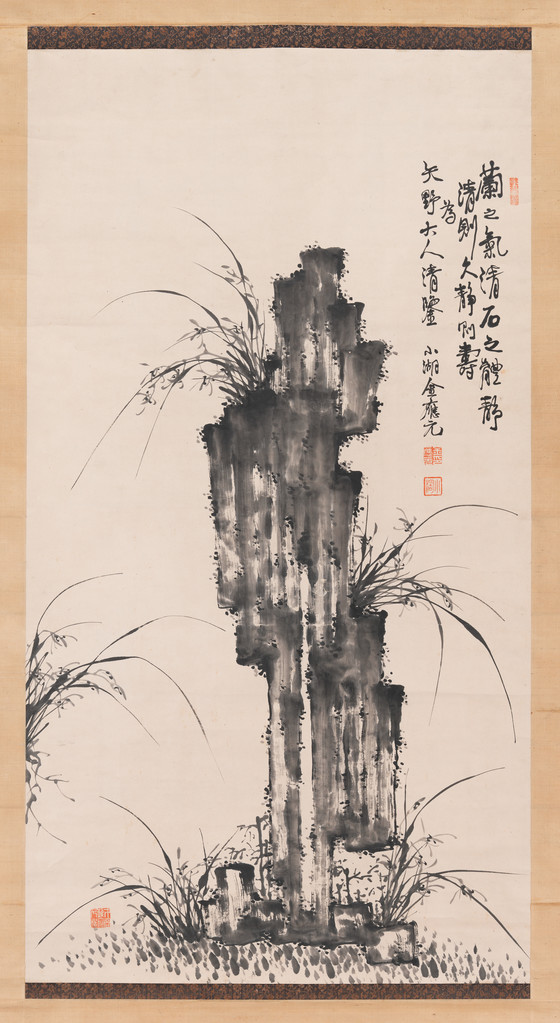 蘭之氣清石之體靜
清則久靜則壽
為
矢野大人清鑒 小湖金應元